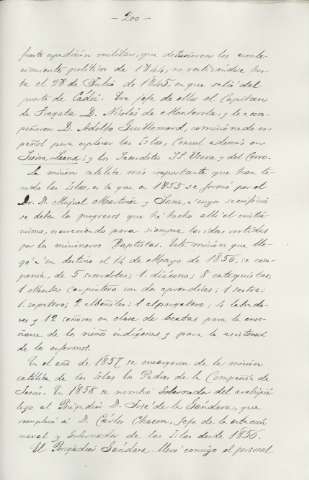 - 200 -
fuerte expedición militar, que detuvieron los aconte-
cimientos políticos de 1844, no verificándose has-
ta el 28 de Julio de 1845 en que salió del
puerto de Cádiz. Era jefe de ella el Capitán
de Fragata D. Nicolás de Manterola; y le acom-
pañaron D. Adolfo Guillemard, comisionado es-
pañol para explorar las islas, Consul además en
Sierra Leona; y los Sacerdotes Srs. Usera y del Cerro.
La misión católica más importante que han te-
nido las islas, es la que en 1855 se formó por el
Dr. D. Miguel Martínez y Sanz, a cuyo
se deben los progresos que ha hecho allí el cristia-
nismo, para siempre las ideas vertidas
por los misioneros Baptistas. Esta misión que lle-
gó a su destino el 14 de Mayo de 1856, se com-
ponía, de 5 1 diácono; 8 catequistas;
1 Maestro Carpintero con dos aprendices; 1 sastre;
1 zapatero; 2 albañiles; 1 alpargatero; 14 labrado-
res y 12 señoras en clase de beatas para la ense-
ñanza de las niñas indígenas y para la asistencia
de los enfermos.
En el año de 1857 se encargaron de la misión
católica de las islas los Padres de la Compañía de
Jesús. En 1858 se nombró Gobernador del archipié-
lago al Brigadier D. José de la Gándara, que
reemplazó a D. Carlos Chacón, Jefe de la estación
naval y Gobernador de las Islas desde 1856.
El Brigadier Gándara llevó consigo el personal